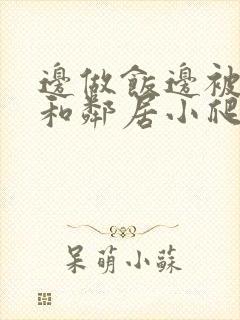 邊做飯邊被
和鄰居小爬
呆萌小蘇